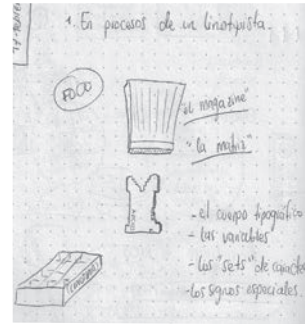 1. En procesos de un linotypista.
FOCO
"el magazine"
"la matriz"
- el cuerpo tipográfico
- las variables
- los "sets" de caracte
- los signos especiales.